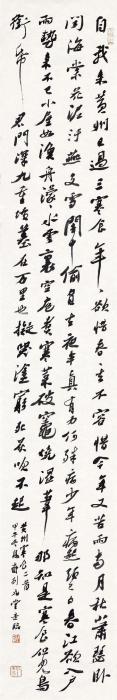 自我來黃州已過三寒食年年欲惜春春去不容惜今年又苦雨兩月秋蕭瑟臥
聞海棠花泥汙燕支雪闇中偷負去夜半真有力何殊病少年病起頭已白春江欲入戶
雨勢來不已小屋如漁舟濛濛水雲裏空庖煮寒菜破竈燒濕葦那知是寒食但見烏
銜帋君門深九重墳墓在万里也擬哭塗窮死灰吹不起
黃州寒食二首